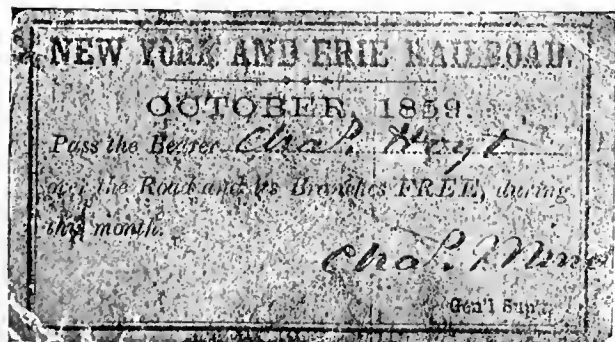 NEW YORK AND ERIE RAILROAD.
OCTOBER, 1859.
Pass the Bearer Chas. Hoyt
over the Road and its Branches FREE, during
this month.
Chas. Mino
Gen'l Sup't